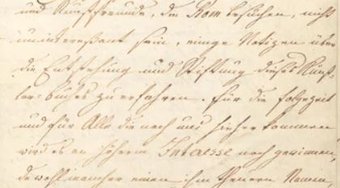 und Kunstfreunde, die Rom besuchen, nicht
uninteressant sein, einige Notizen über
die Entstehung und Stiftung dieses Künst-
ler-Bundes zu erfahren. Für die Folgezeit
und für Alle die nach uns hieher kommen
wird es an höherm Interesse noch gewinnen,
da wohl mancher einen ihm theuern Namen,